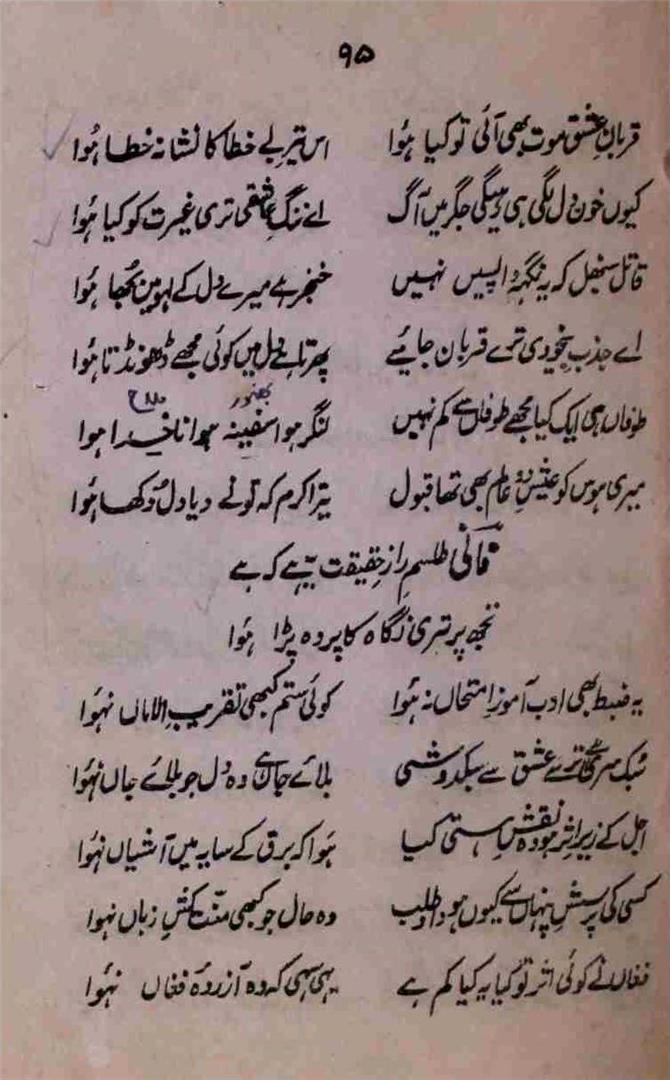 ۹۵
قربانِ عشق موت بھی آئی تو کیا ہُوا اس تیرِ بے خطا کا نشانہ خطا ہُوا
کیوں خونِ دل لگی ہی دہیگی جگر میں آگ اے ننگِ عاشقی تری غیرت کو کیا ہُوا
قاتل سنبھل کہ یہ نگہِ واپسیں نہیں خنجر ہے میرے دل کے لہو میں بُجھا ہُوا
اے جذبِ بیخودی ترے قربان جائیے پھرتا ہے دل میں کوئی مجھے ڈھونڈتا ہُوا
بھنور ملاح
طوفاں ہی ایک کیا مجھے طوفاں سے کم نہیں لنگر ہوا سفینہ ہوا ناخدا ہوا
میری ہوس کو عیشِ دو عالم بھی تھا قبول تیرا کرم کہ تو نے دیا دل دُکھا ہُوا
فانی طلسمِ رازِ حقیقت یہی ہے کہ ہے
تجھ پر تری نگاہ کا پردہ پڑا ہُوا
یہ ضبط بھی ادب آموزِ امتحاں نہ ہُوا کوئی ستم کبھی تقریبِ الاماں نہُوا
سُبک سری ہے ترے عشق سے سبکدوشی بلائے جاں ہے وہ دل جو بلائے جاں نہُوا
اجل کے زیرِ اثر ہو وہ نقشِ ہستی کیا ہُوا کہ برق کے سایہ میں آشیاں نہُوا
کسی کی پرسشِ پنہاں سے کیوں ہو داد طلب وہ حال جو کبھی منّت کشِ زباں نہوا
فغاں نے کوئی اثر تو کیا یہ کیا کم ہے یہی سہی کہ وہ آزردۂ فغاں نہُوا